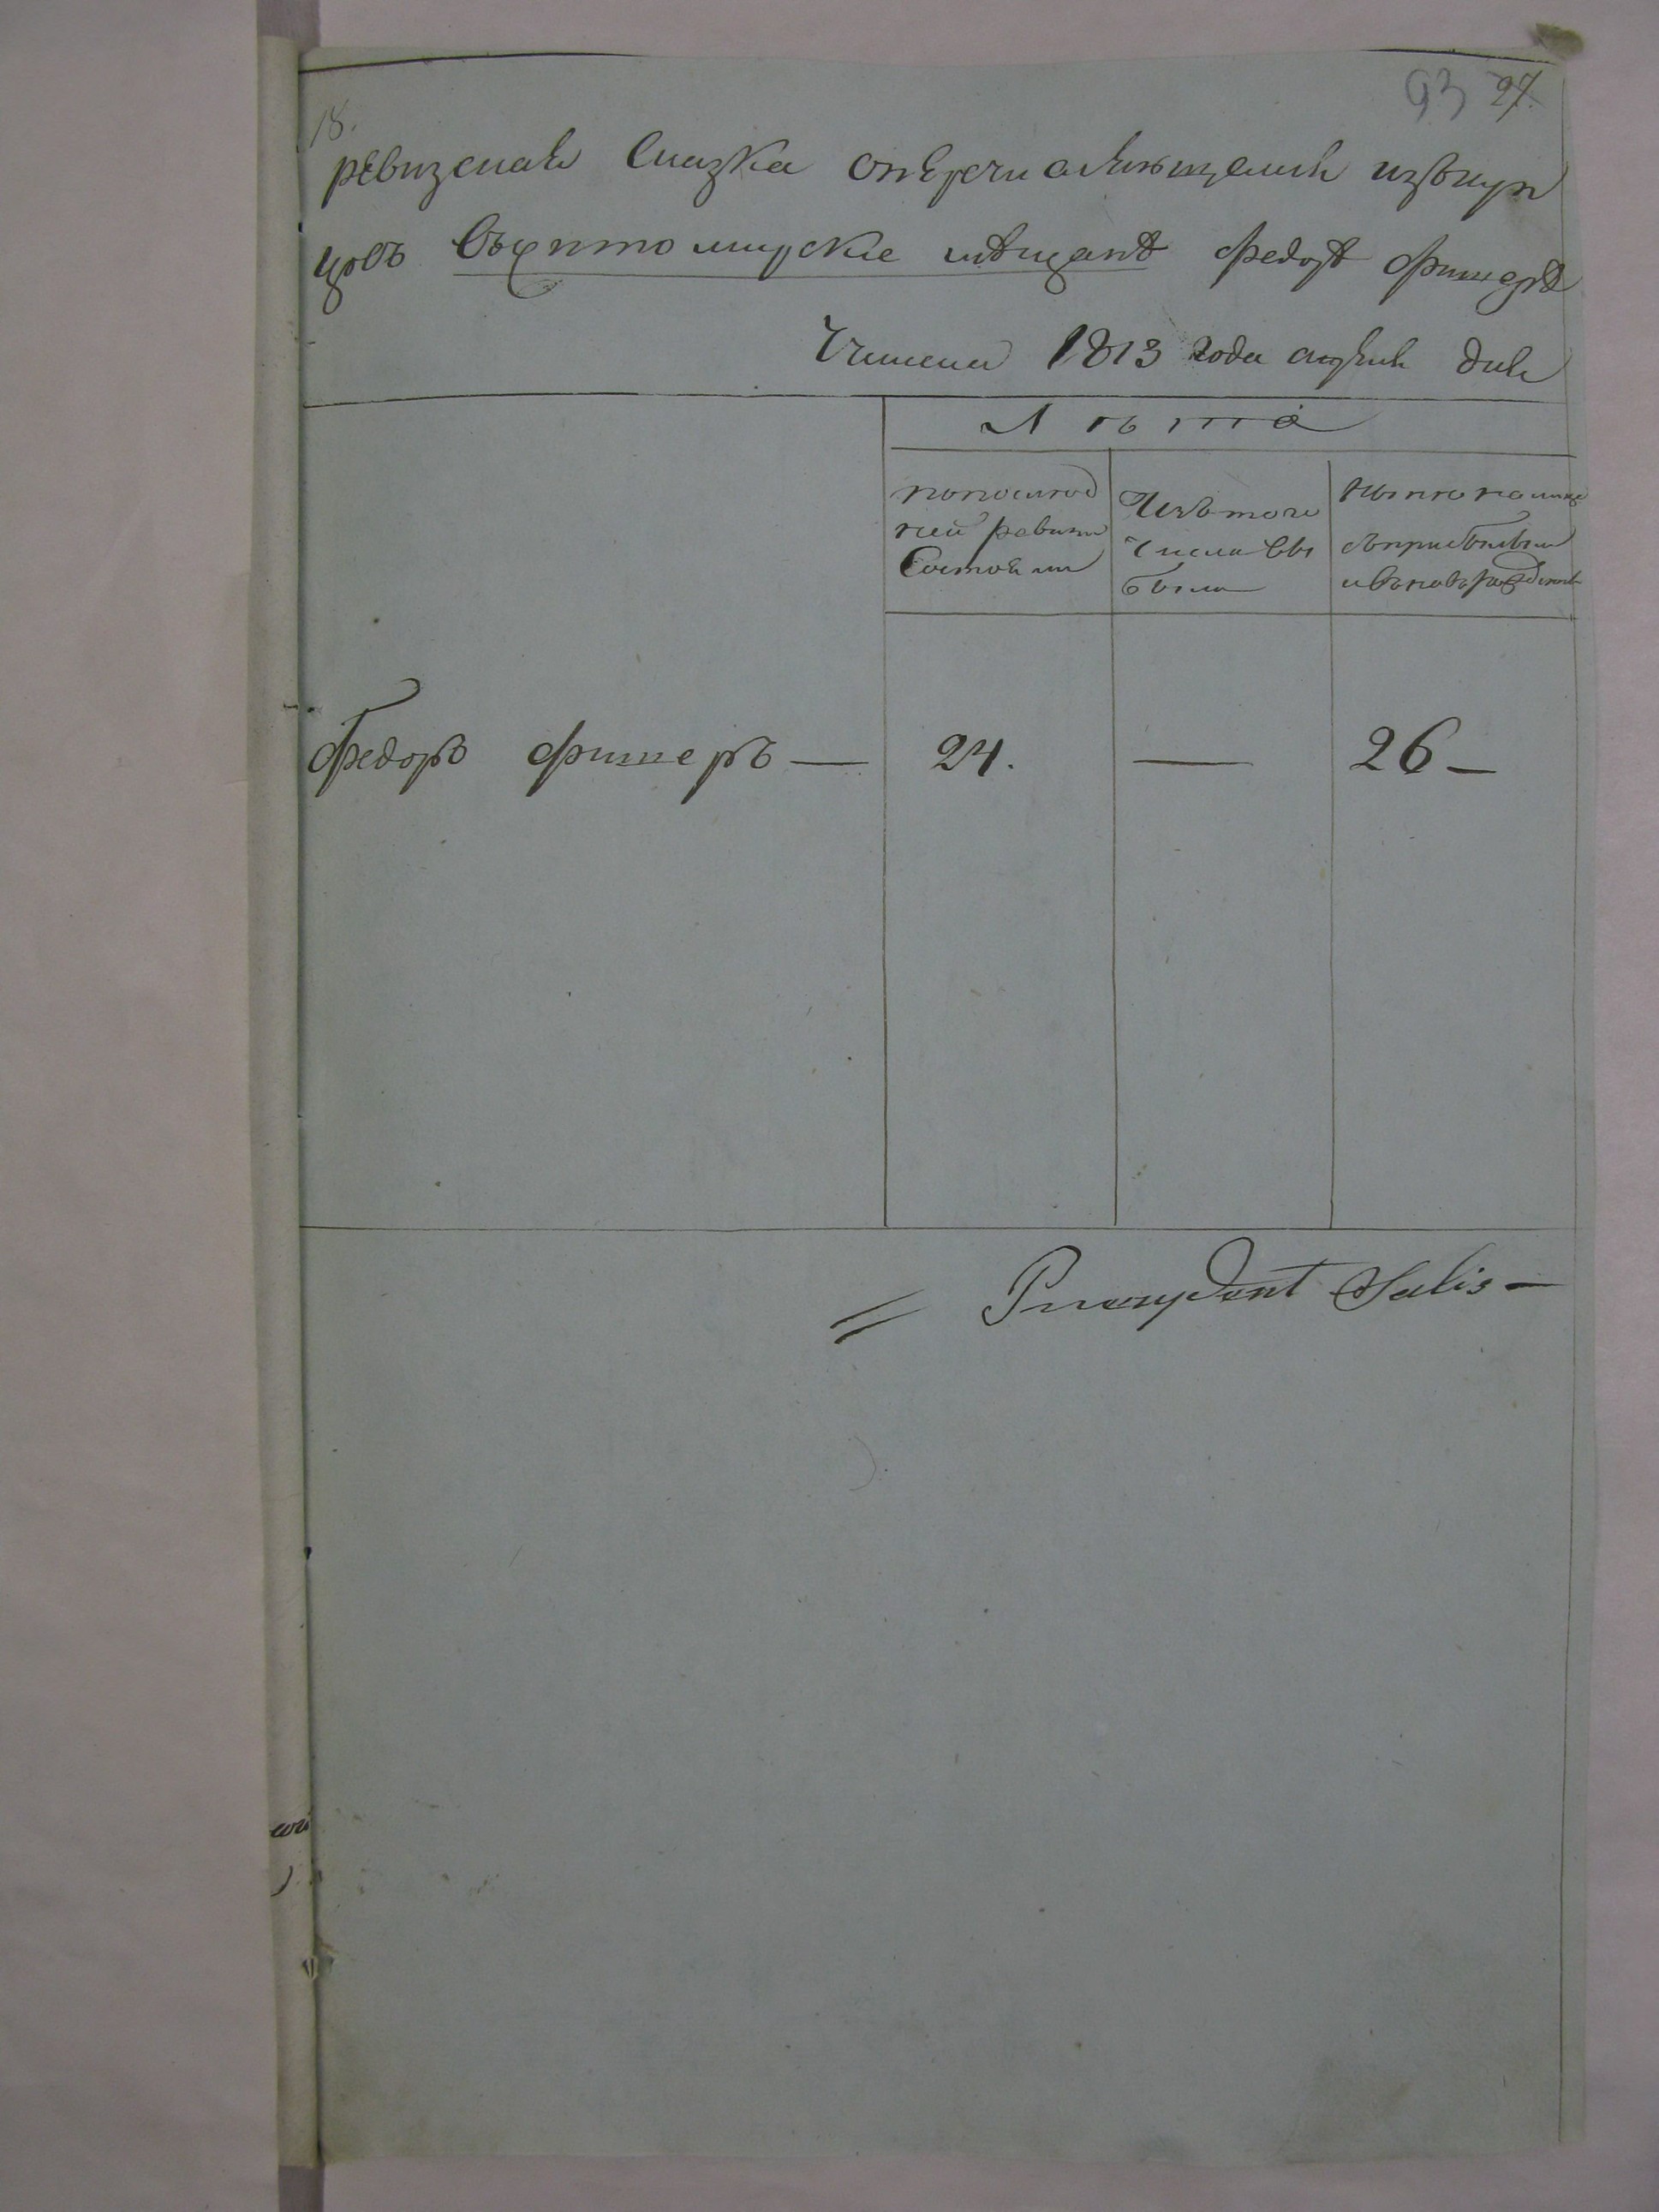 93 27
18.
ревизская Сказка оперечисляющемся изъкуп
цовъ Въжитомирские мѣщанѣ Федорѣ Фишерѣ
Учинена 1813 года апреля дня
Лѣта
попослед
ней ревизии
Состояли
Изътого
числа вы
было
Ныне налицо
съприбылыми
ивновьрожденными
Федоръ Фишеръ — 24. — 26 —
= Prezydent Salis —